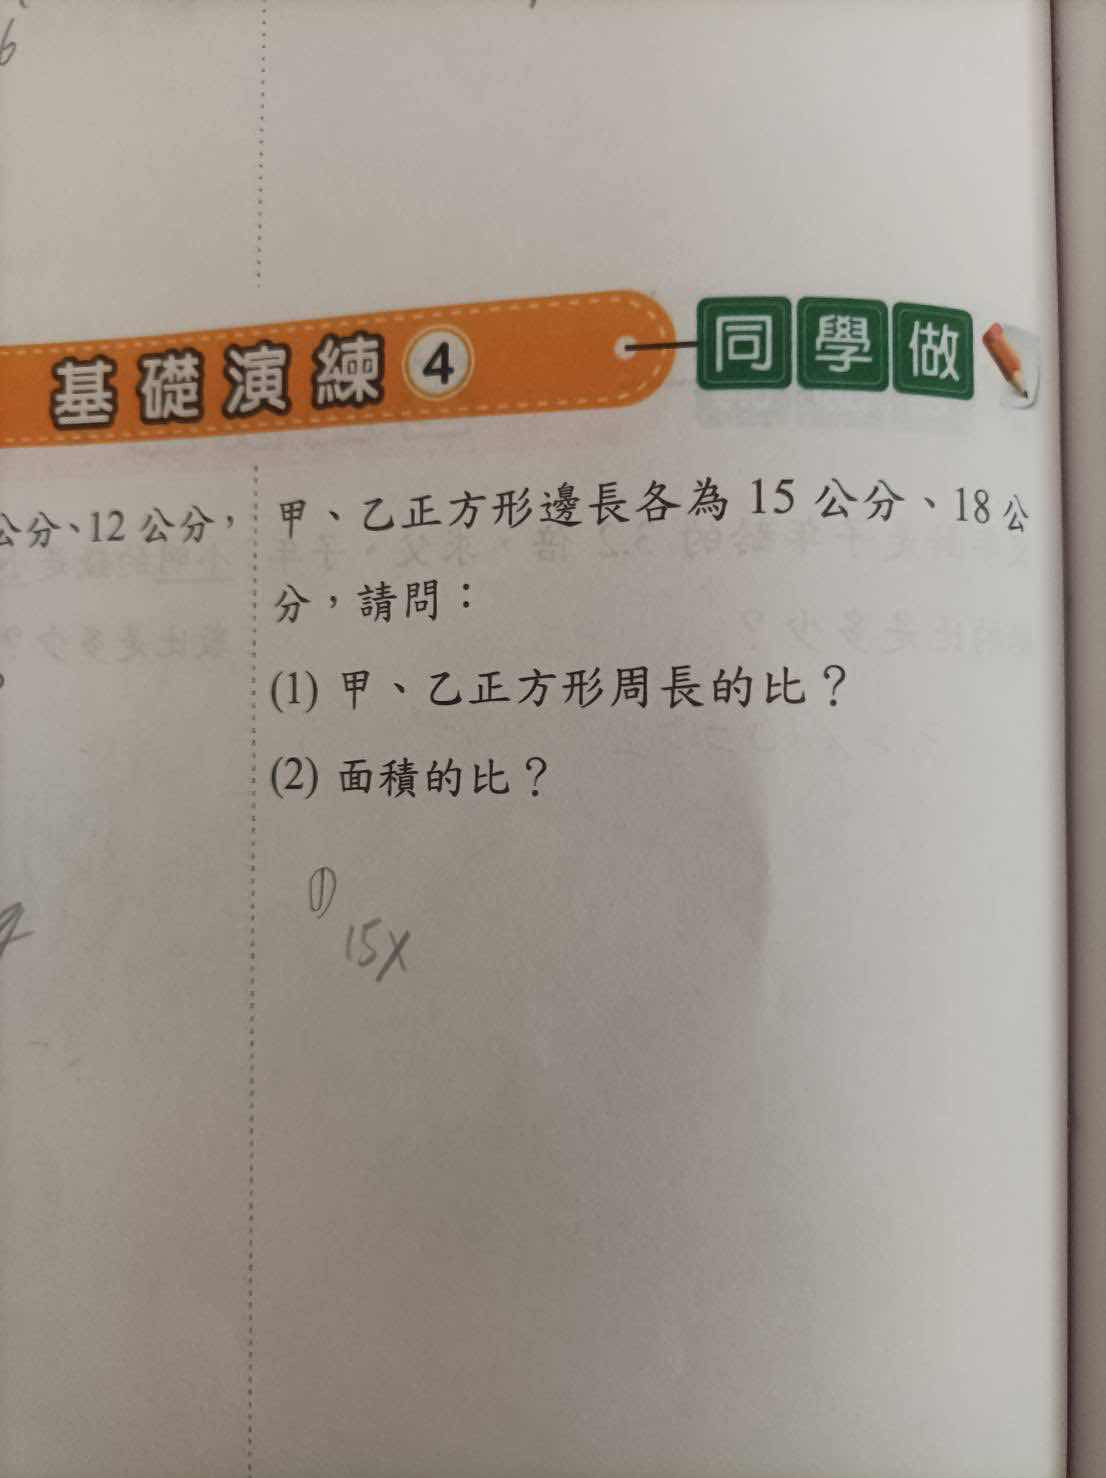 6
基礎演練 4 同學做
公分、12 公分，
甲、乙正方形邊長各為 15 公分、18 公
分，請問：
(1) 甲、乙正方形周長的比？
(2) 面積的比？
①
15X